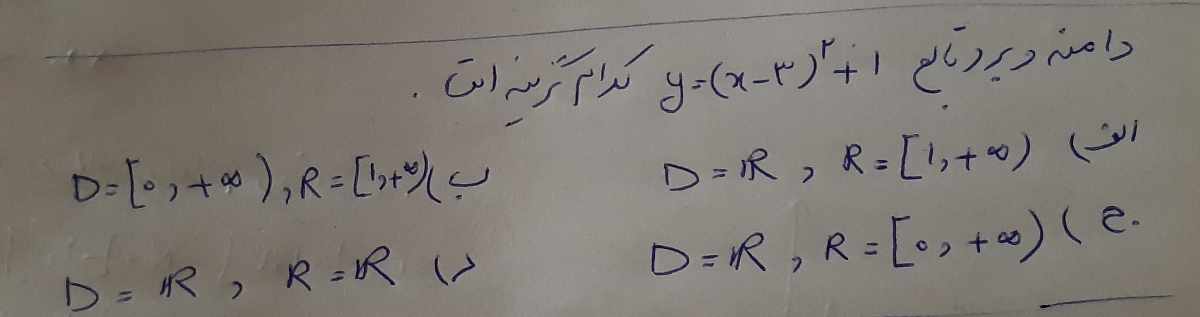 دامنه و برد تابع y=(x-۳)^۲+۱ کدام گزینه است .
الف) D=ℝ , R=[1,+∞)
ب) D=[0,+∞), R=[1,+∞)
ج) D=ℝ , R=[0,+∞)
د) D=ℝ , R=ℝ